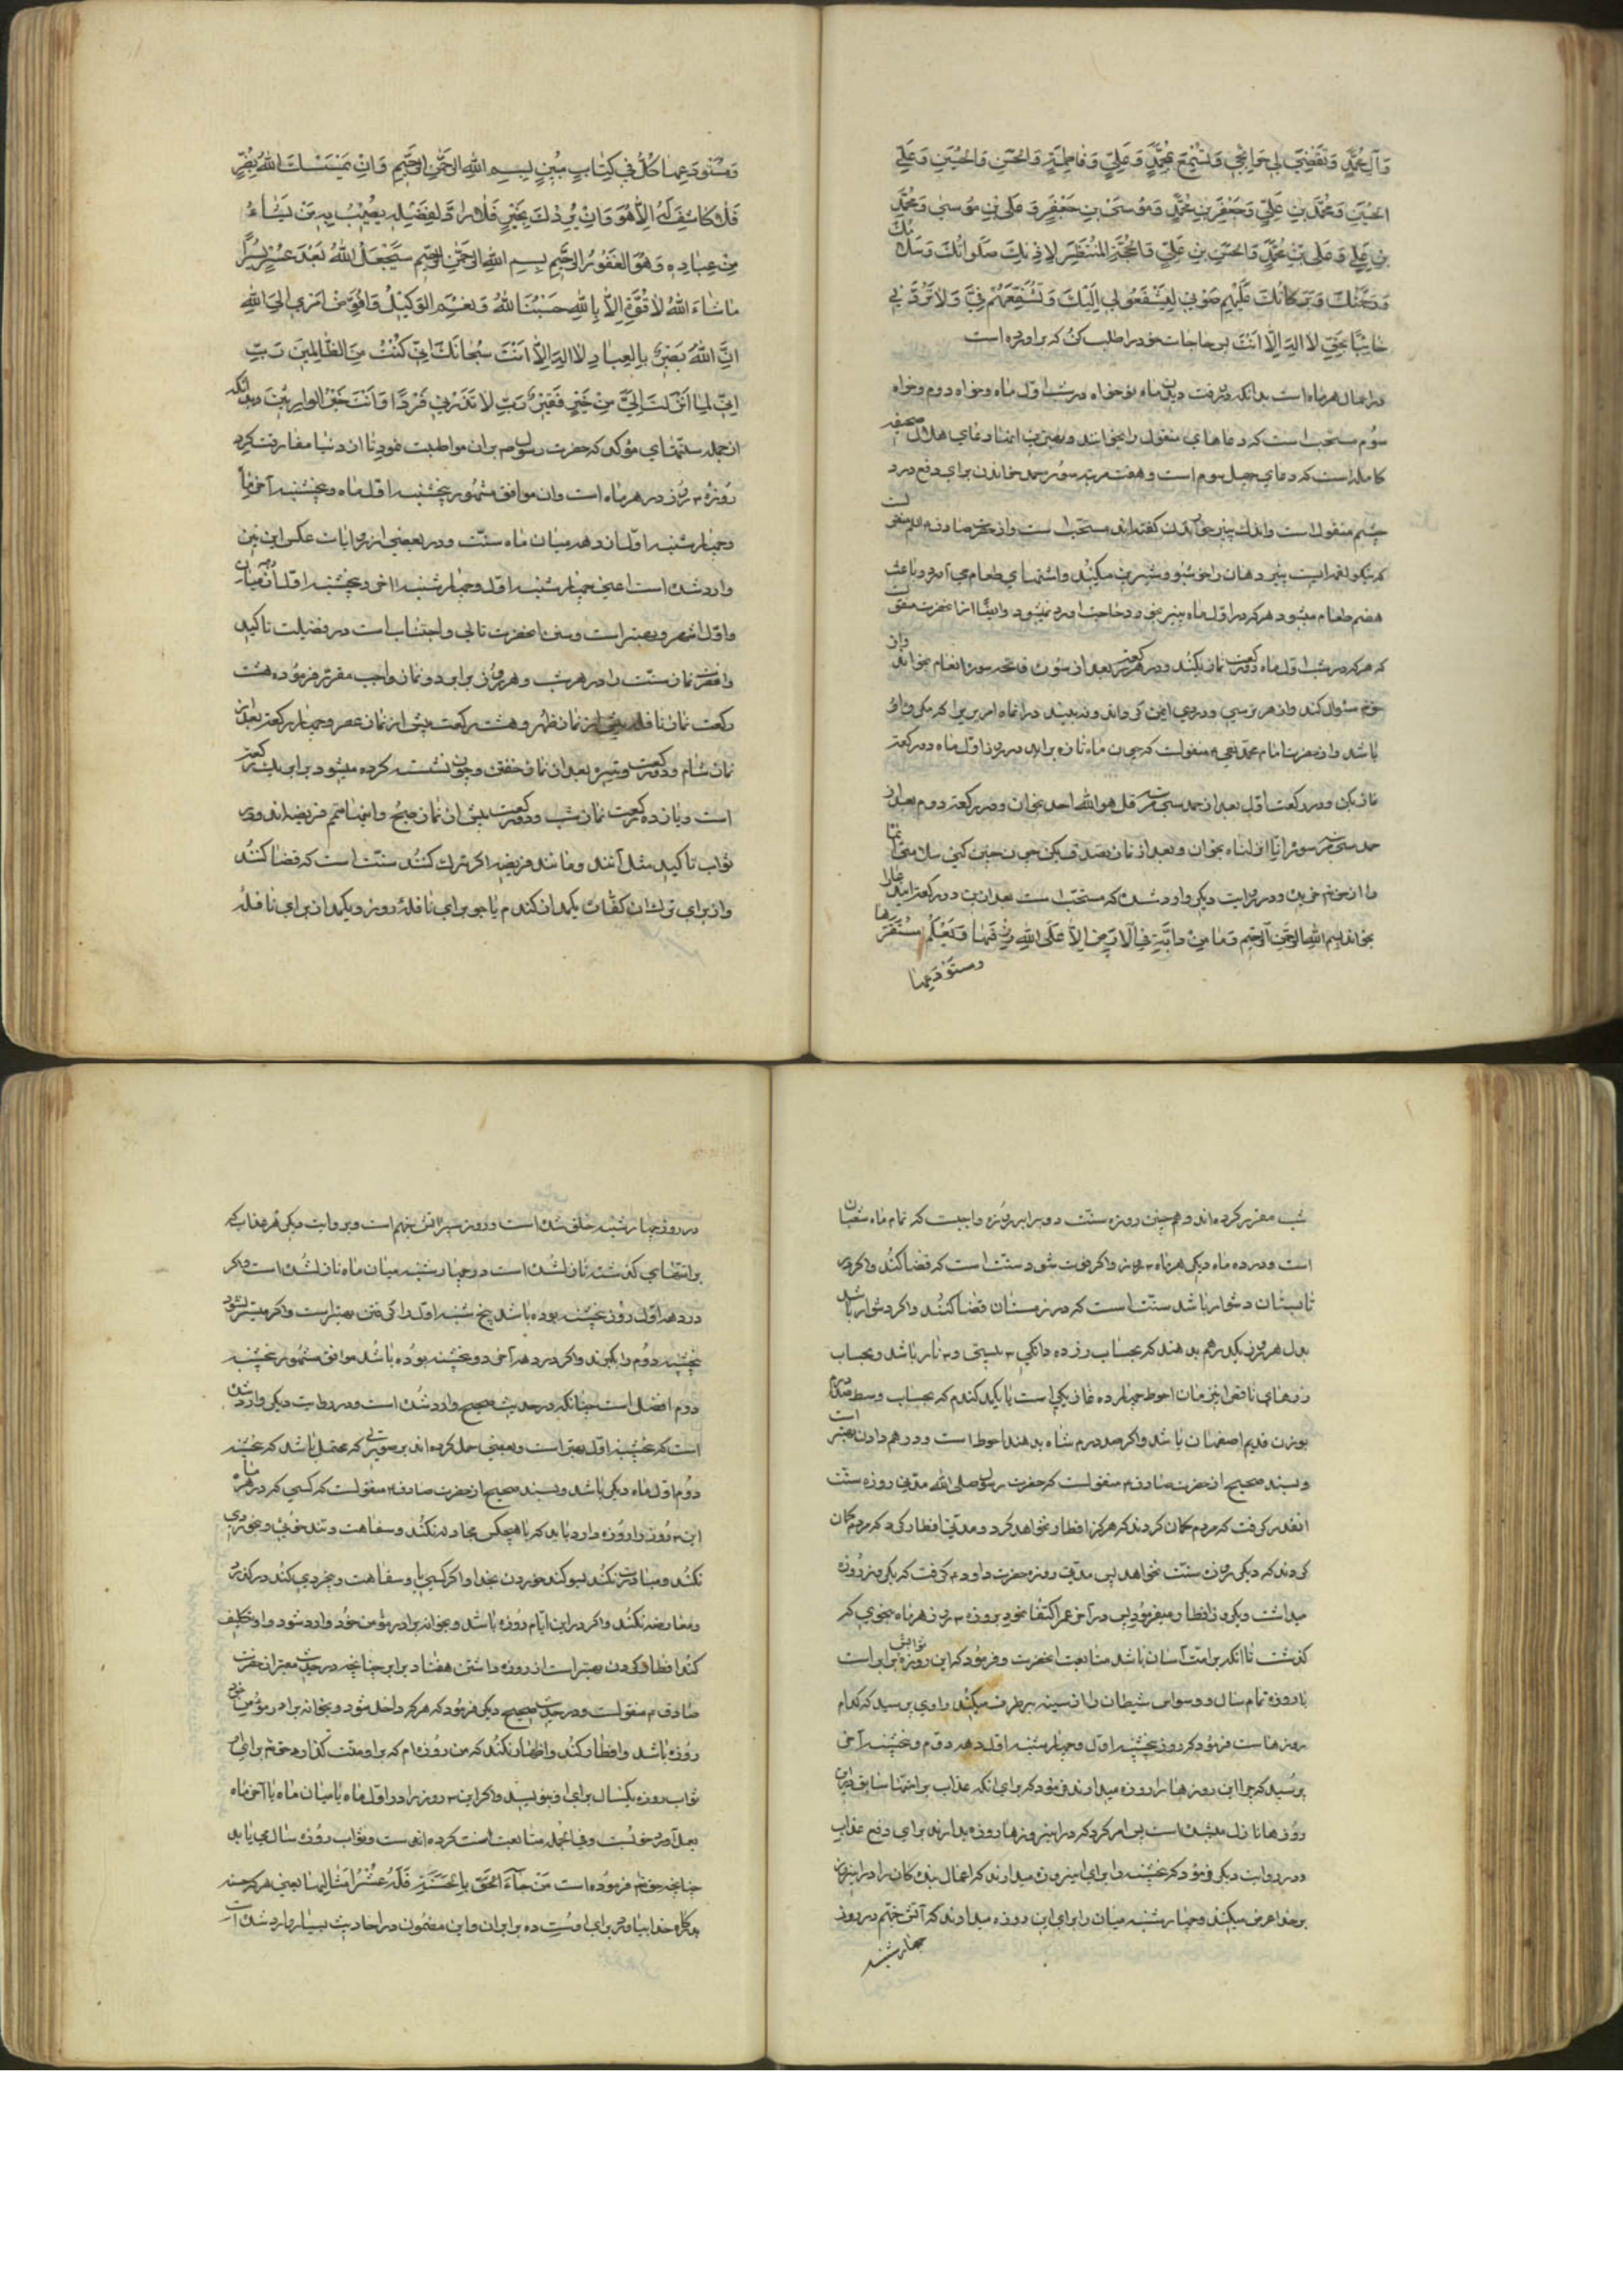 وَآلِ مُحَمَّدٍ وَتَقْضِيَ لِي حَوَائِجِي وَتُشَفِّعَ مُحَمَّدٍ وَعَلِيٍّ وَفَاطِمَةَ وَالْحَسَنِ وَالْحُسَيْنِ وَعَلِيِّ
الْحُسَيْنِ وَمُحَمَّدِ بْنِ عَلِيٍّ وَجَعْفَرِ بْنِ مُحَمَّدٍ وَمُوسَى بْنِ جَعْفَرٍ وَعَلَى بْنِ مُوسٰى وَمُحَمَّدِ
بْنِ عَلِيٍّ وَعَلَى بْنِ مُحَمَّدٍ وَالْحَسَنِ بْنِ عَلِيٍّ وَالْحُجَّةِ الْمُنْتَظَرِ لِاِذْنِكَ صَلَوٰاتُكَ وَسَلٰامُكَ
وَرَحْمَتُكَ وَبَرَكَاتُكَ عَلَيْهِمْ صَوْتِي لِيَشْفَعُوا لِي اِلَيْكَ وَتُشَفِّعَهُمْ فِيَّ وَلَا تَرُدَّنِي
خَائِبًا بِحَقِّ لَا اِلٰهَ اِلَّا اَنْتَ پس حاجات خود را طلب كن كه براورده است
در اعمال هر ماه است بدانكه در وقت ديدن ماه نو خواه در شب اول ماه و خواه دوم و خواه
سوم مستحب است كه دعاهاى منقول را بخوانند و بهترين انها دعاى هلال صحيفه
كامله است كه دعاى چهل سوم است و هفت مرتبه سوره حمد خواندن براى دفع درد
چشم منقول است و اندك پنير خوردن گفته اند مستحب است و از حضرت صادق منقولست
كه نيكو لقمه ايست پنير دهان را خوشبو و شيرين ميكند و اشتهاى طعام مى آورد و باعث
هضم طعام ميشود هر كه در اول ماه پنير بخورد حاجت او رد نميشود و ايضا از انحضرت منقولست
كه هر كه در شب اول ماه دو ركعت نماز بكند و در هر ركعت بعد از سوره فاتحه سوره انعام بخواند و از
حق تعالى سؤال كند از هر ترسى و دردى ايمن گرداند و نه بيند در انماه امرى را كه مكروه او
باشد و از حضرت امام محمد تقى منقولست كه چون ماه تازه درايد در روز اول ماه دو ركعت
نماز بكن و در ركعت اول بعد از حمد سى مرتبه قل هو الله احد بخوان و در ركعت دوم بعد از
حمد سى مرتبه سوره انا انزلناه بخوان و بعد از نماز تصدق بكن چون چنين كنى سلامتى انماه
را از حق تعالى خريده و در روايت ديگر وارد شده كه مستحب است بعد از اين دو ركعت اين دعا را
بخواند بِسْمِ اللهِ الرَّحْمٰنِ الرَّحِيمِ وَمَا مِنْ دَابَّةٍ فِي الْاَرْضِ اِلَّا عَلَى اللهِ رِزْقُهَا وَيَعْلَمُ مُسْتَقَرَّهَا
ومستودعها
وَمُسْتَوْدَعَهَا كُلٌّ فِي كِتَابٍ مُبِينٍ بِسْمِ اللهِ الرَّحْمٰنِ الرَّحِيمِ وَاِنْ يَمْسَسْكَ اللهُ بِضُرٍّ
فَلَا كَاشِفَ لَهُ اِلَّا هُوَ وَاِنْ يُرِدْكَ بِخَيْرٍ فَلَا رَادَّ لِفَضْلِهِ يُصِيبُ بِهِ مَنْ يَشَاءُ
مِنْ عِبَادِهِ وَهُوَ الْغَفُورُ الرَّحِيمُ بِسْمِ اللهِ الرَّحْمٰنِ الرَّحِيمِ سَيَجْعَلُ اللهُ بَعْدَ عُسْرٍ يُسْرًا
مَا شَاءَ اللهُ لَا قُوَّةَ اِلَّا بِاللهِ حَسْبُنَا اللهُ وَنِعْمَ الْوَكِيلُ وَاُفَوِّضُ اَمْرِي اِلَى اللهِ
اِنَّ اللهَ بَصِيرٌ بِالْعِبَادِ لَا اِلٰهَ اِلَّا اَنْتَ سُبْحَانَكَ اِنِّي كُنْتُ مِنَ الظَّالِمِينَ رَبِّ
اِنِّي لِمَا اَنْزَلْتَ اِلَيَّ مِنْ خَيْرٍ فَقِيرٌ رَبِّ لَا تَذَرْنِي فَرْدًا وَاَنْتَ خَيْرُ الْوَارِثِينَ و بدانكه
از جمله سنتهاى مؤكد كه حضرت رسول ص بران مواظبت نمود تا از دنيا مفارقت كرد
روزه ٣ روز در هر ماه است و ان موافق مشهور پنجشنبه اول ماه و پنجشنبه آخر ماه
و چهارشنبه اول از دهه ميان ماه سنت و در بعضى از روايات عكس اين نيز
وارد شده است اعنى چهارشنبه اول و چهارشنبه اخر و پنجشنبه اول از دهه ميان
و اول اشهر و بهتر است و سنت انحضرت تالى واجبات است در فضيلت تاكيد
و انحضرت نماز سنت را در هر شب و هر روز برابر دو نماز واجب مقرر فرموده هشت
ركعت نماز نافله پيش از نماز ظهر و هشت ركعت پيش از نماز عصر و چهار ركعت بعد از
نماز شام و دو ركعت وتيره بعد از نماز خفتن و چون نشسته كرده ميشود برابر يك ركعت
است و يازده ركعت نماز شب و دو ركعت پيش از نماز صبح و اينها متمم فريضه اند و در
ثواب تاكيد مثل آنند و مانند فريضه اگر ترك كنند سنت است كه قضا كنند
و از براى ترك ان كفاره يكمد از گندم يا جو براى نافله روز و يكمد از براى نافله
شب مقرر كرده اند و همچنين روزه سنت دو برابر روزه واجبست كه تمام ماه شعبان
است و در ده ماه ديگر هر ماه ٣ روز و اگر فوت شود سنت است كه قضا كنند و اگر در
تابستان دشوار باشد سنت است كه در زمستان قضا كنند و اگر دشوار باشد
بدل هر روز يكدرهم بدهند كه بحساب زر ده دانگى ٣ بيستى و ٣ نار باشد و بحساب
زرهاى ناقص اينزمان احوط چهارده غازبيگى است يا يكمد گندم كه بحساب وسط صد درم
بوزن قديم اصفهان باشد و اگر صد درم شاه بدهند احوط است و درهم دادن بهتر است
و بسند صحيح از حضرت صادق منقولست كه حضرت رسول صلى الله مدتى روزه سنت
انقدر گرفت كه مردم گمان كردند كه هرگز افطار نخواهد كرد و مدتى افطار كرد كه مردم گمان
كردند كه ديگر روزه سنت نخواهد پس مدتى روزه حضرت داود گرفت كه يكروز روزه
ميداشت و يكروز افطار ميفرمود پس در آخر عمر اكتفا نمود بروزه ٣ روز هر ماه بنحوى كه
گذشت تا انكه بر امت آسان باشد متابعت انحضرت و فرمود كه اين روزه ثوابش برابر است
با روزه تمام سال و وسواس شيطان را از سينه برطرف ميكند راوى پرسيد كه كدام
روزهاست فرمود كه روز پنجشنبه اول و چهارشنبه اول دهه دوم و پنجشنبه آخر
پرسيد كه چرا اين روزها را روزه ميدارند فرمود كه براى انكه عذاب بر امتهاى سابق در اين
روزها نازل ميشده است پس امر كرد كه در اينروزها روزه بدارند براى دفع عذاب
و در روايت ديگر فرمود كه پنجشنبه را براى اين روزه ميدارند كه اعمال بندگان را در اينروز
بر خدا عرض ميكنند و چهارشنبه ميان را براى اين روزه ميدارند كه آتش جهنم در روز
چهارشنبه
در روز چهارشنبه خلق شده است و روزه سپر اتش جهنم است و بروايت ديگر هر عذاب كه
بر امتهاى گذشته نازل شده است در چهارشنبه ميان ماه نازل شده است و اگر
در دهه اول دو روز پنجشنبه بوده باشد پنجشنبه اول را گرفتن بهتر است و اگر ميسر نشود
پنجشنبه دوم را بگيرند و اگر در دهه آخر دو پنجشنبه بوده باشد موافق مشهور پنجشنبه
دوم افضل است چنانكه در حديث صحيح وارد شده است و در روايت ديگر وارد شده
است كه پنجشنبه اول بهتر است و بعضى حمل كرده اند بر صورتى كه محتمل باشد كه پنجشنبه
دوم اول ماه ديگر باشد و بسند صحيح از حضرت صادق منقولست كه كسى كه در هر ماه
اين ٣ روز را روزه دارد بايد كه با هيچكس مجادله نكند و سفاهت و تند خوئى و بيخردى
نكند و مبادرت نكند بسوگند خوردن بخدا و اگر كسى با او سفاهت و بيخردى كند در گذرد
و معارضه نكند و اگر در اين ايام روزه باشد و بخانه برادر مؤمن خود وارد شود و او تكليف
كند افطار كردن بهتر است از روزه داشتن هفتاد برابر چنانچه در حديث معتبر از حضرت
صادق منقولست و در حديث صحيح ديگر فرمود كه هر كه داخل شود بخانه برادر مؤمن خود
روزه باشد و افطار كند و اظهار نكند كه من روزه ام كه بر او منت گذارد حق تعالى براى او
ثواب روزه يكسال براى او بنويسد و اگر اين ٣ روز را در اول ماه يا ميان ماه يا آخر ماه
بعمل آورد خوبست و فى الجمله متابعت سنت كرده است و ثواب روزه سال مى يابد
چنانچه حق تعالى فرموده است مَنْ جَاءَ بِالْحَسَنَةِ فَلَهُ عَشْرُ اَمْثَالِهَا يعنى هر كه حسنه
بدرگاه خدا بياورد براى اوست ده برابر ان و اين مضمون در احاديث بسيار وارد شده است